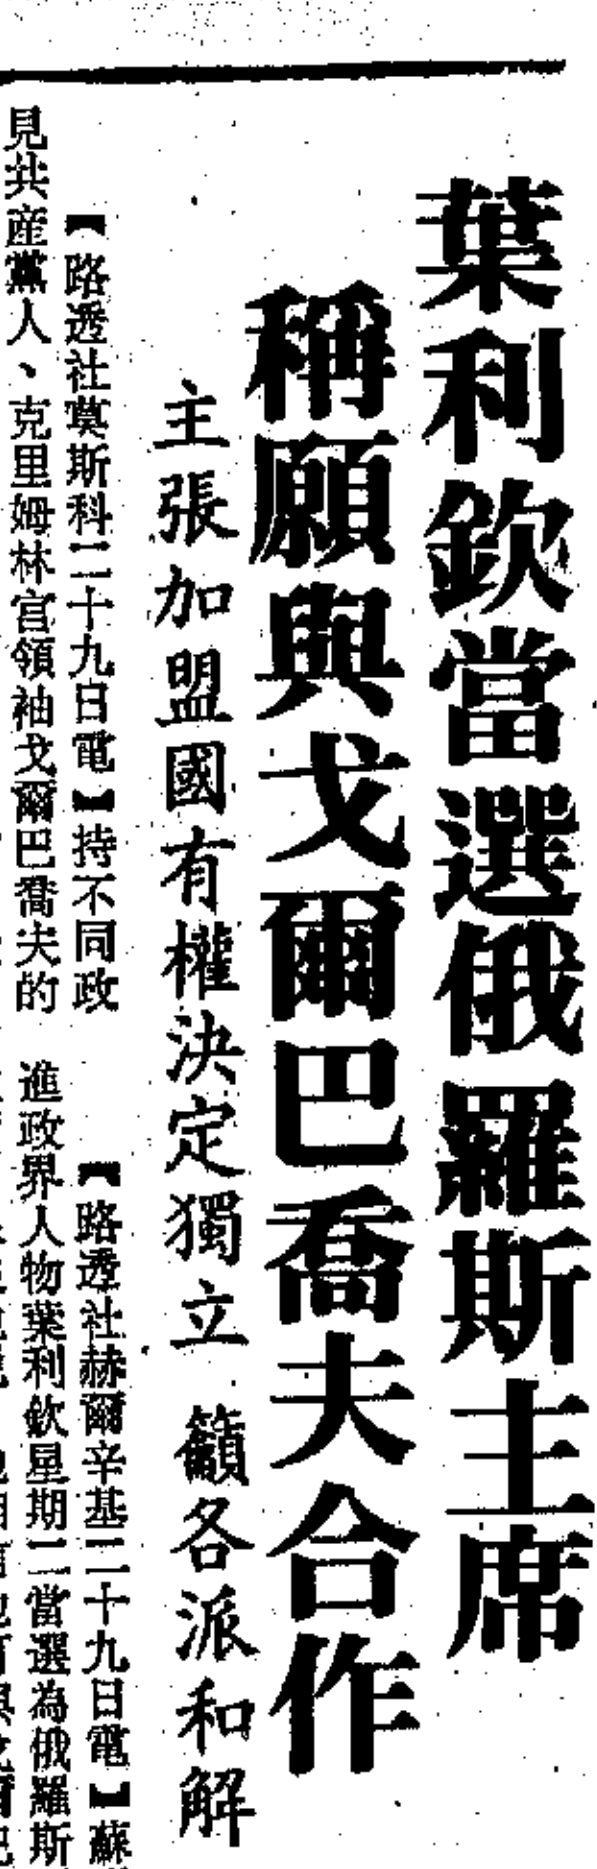 葉利欽當選俄羅斯主席
稱願與戈爾巴喬夫合作
主張加盟國有權決定獨立 籲各派和解
【路透社莫斯科二十九日電】持不同政
見共產黨人、克里姆林宮領袖戈爾巴喬夫的
【路透社赫爾辛基二十九日電】蘇
進政界人物葉利欽星期二當選為俄羅斯